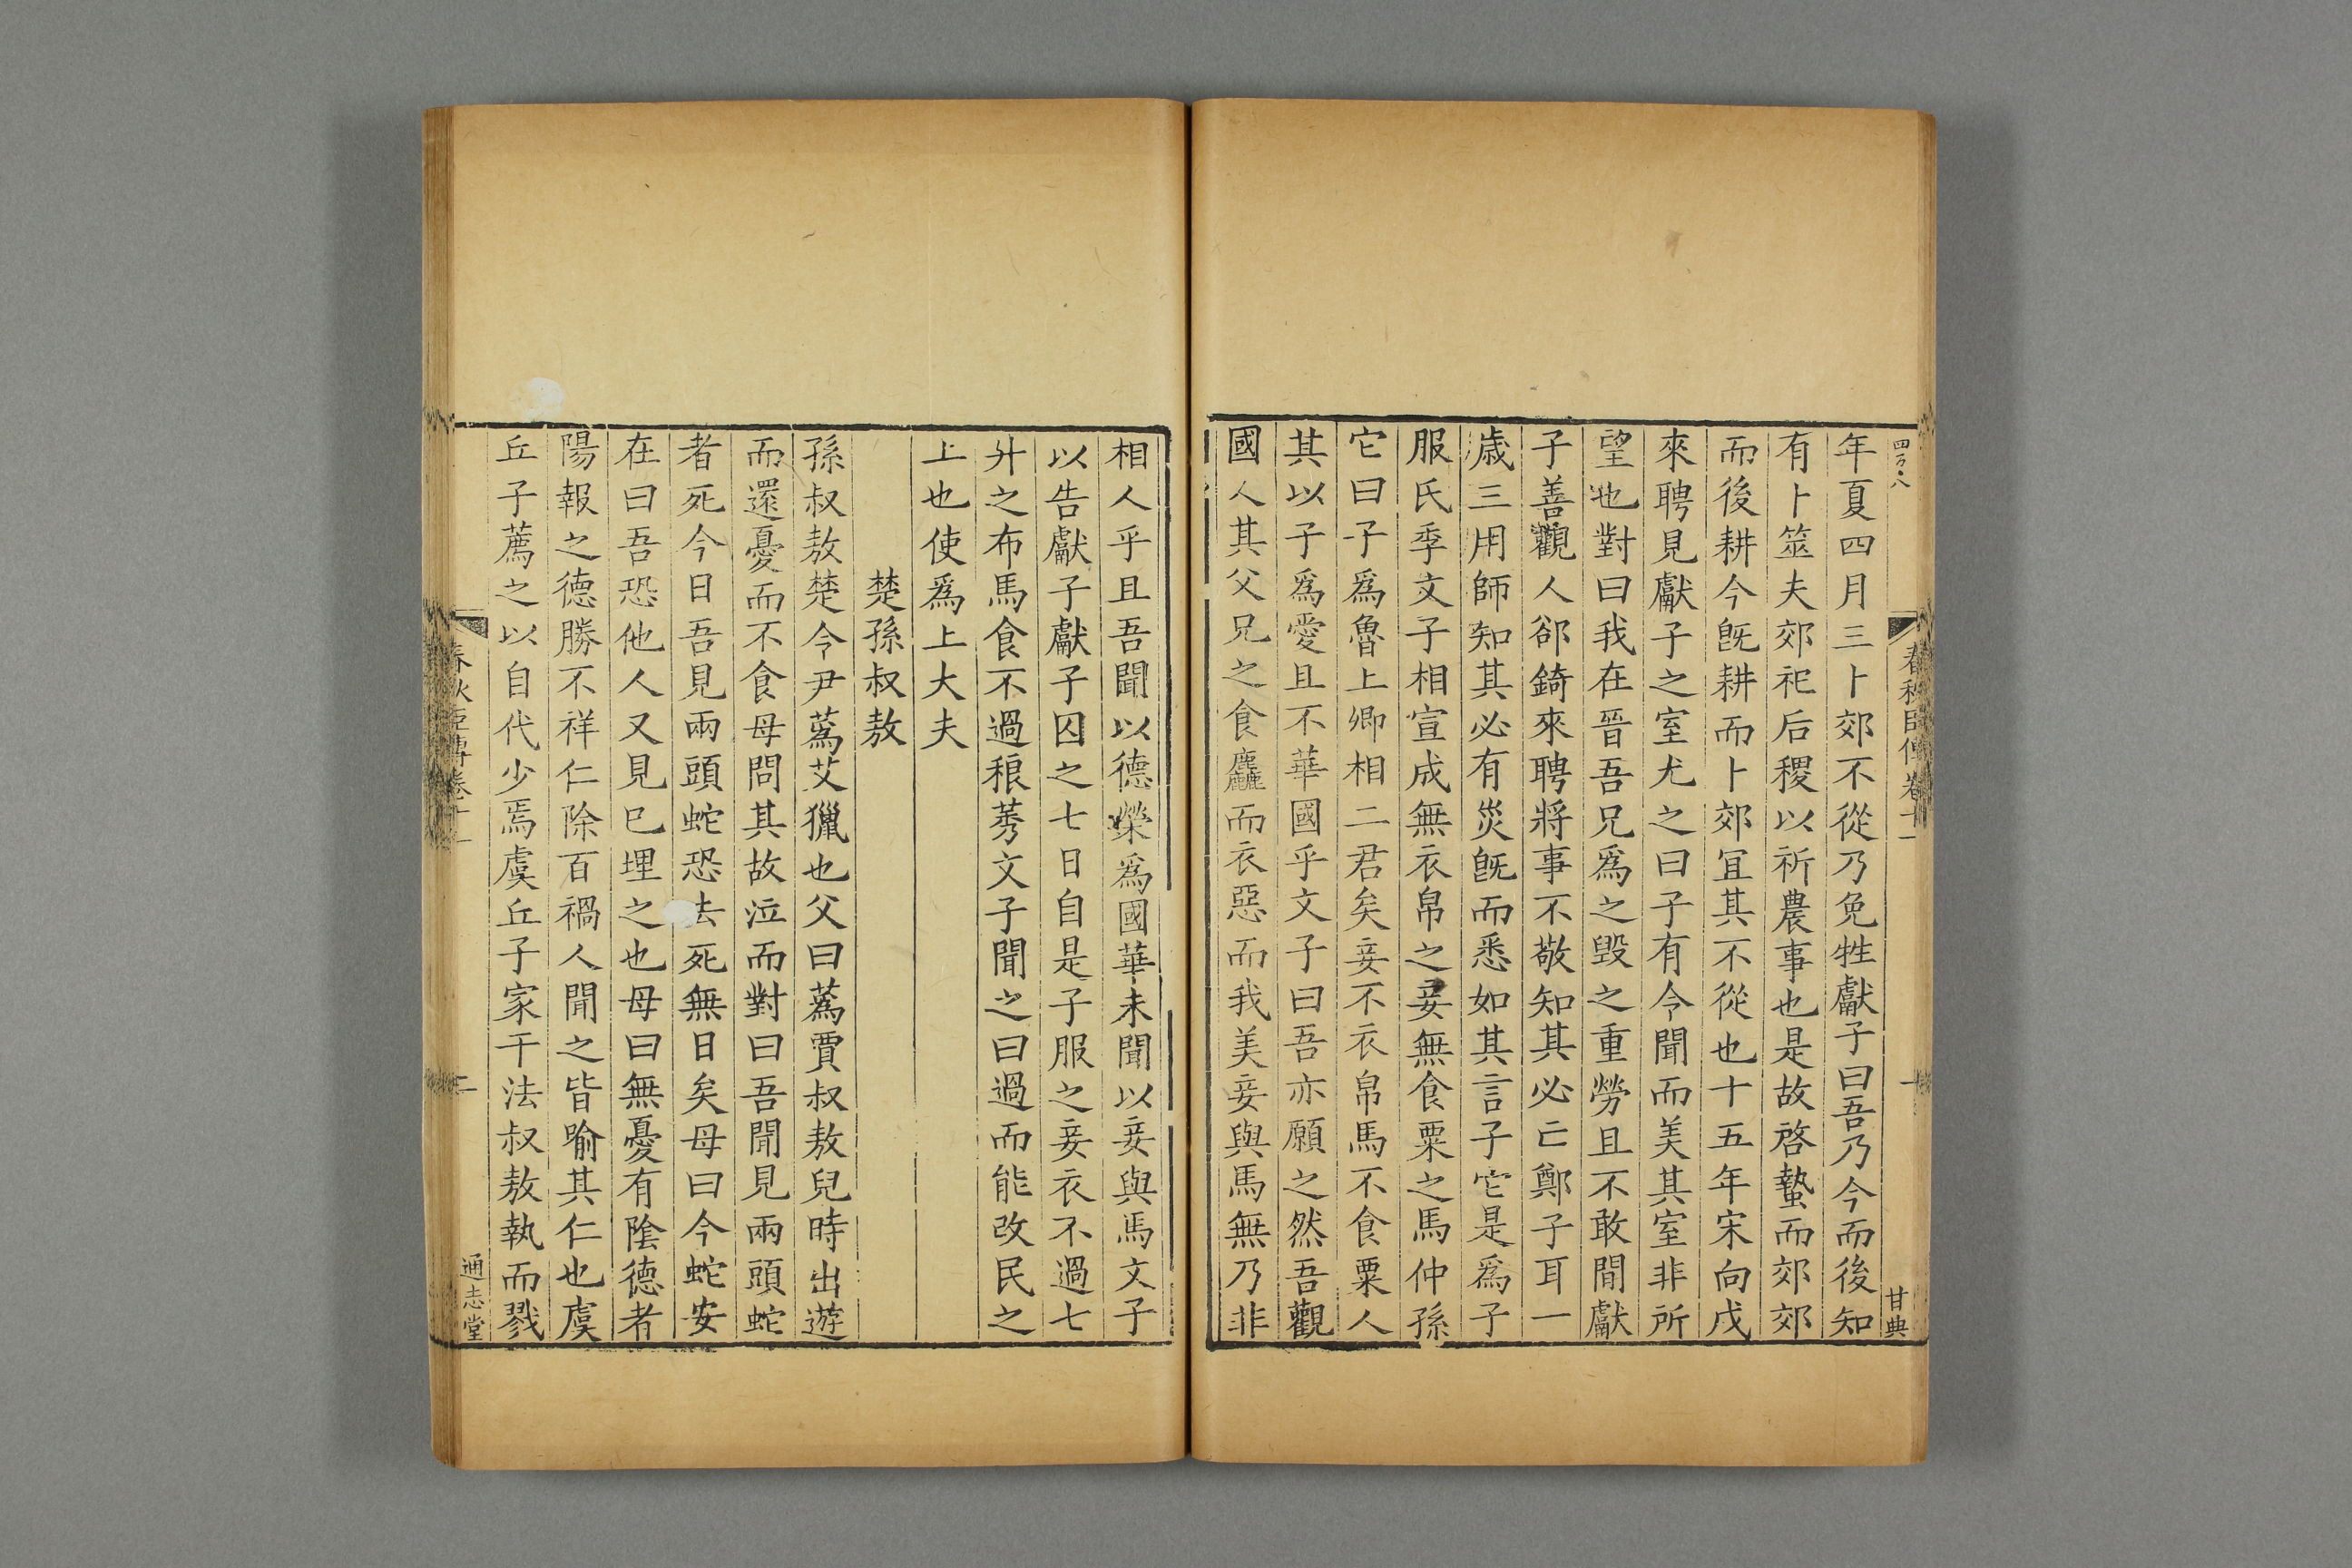 四百八
春秋臣傳卷十一
一
甘典
年夏四月三卜郊不從乃免牲獻子曰吾乃今而後知
有卜筮夫郊祀后稷以祈農事也是故啓蟄而郊郊
而後耕今旣耕而卜郊宜其不從也十五年宋向戌
來聘見獻子之室尤之曰子有令聞而美其室非所
望也對曰我在晉吾兄爲之毀之重勞且不敢閒獻
子善觀人郤錡來聘將事不敬知其必亡鄭子耳一
歲三用師知其必有災旣而悉如其言子它是爲子
服氏季文子相宣成無衣帛之妾無食粟之馬仲孫
它曰子爲魯上卿相二君矣妾不衣帛馬不食粟人
其以子爲愛且不華國乎文子曰吾亦願之然吾觀
國人其父兄之食麤而衣惡而我美妾與馬無乃非
相人乎且吾聞以德榮爲國華未聞以妾與馬文子
以告獻子獻子囚之七日自是子服之妾衣不過七
升之布馬食不過稂莠文子聞之曰過而能改民之
上也使爲上大夫
楚孫叔敖
孫叔敖楚令尹蒍艾獵也父曰蒍賈叔敖兒時出遊
而還憂而不食母問其故泣而對曰吾聞見兩頭蛇
者死今日吾見兩頭蛇恐去死無日矣母曰今蛇安
在曰吾恐他人又見已埋之也母曰無憂有陰德者
陽報之德勝不祥仁除百禍人聞之皆喻其仁也虞
丘子薦之以自代少焉虞丘子家干法叔敖執而戮
春秋臣傳卷十一
二
通志堂